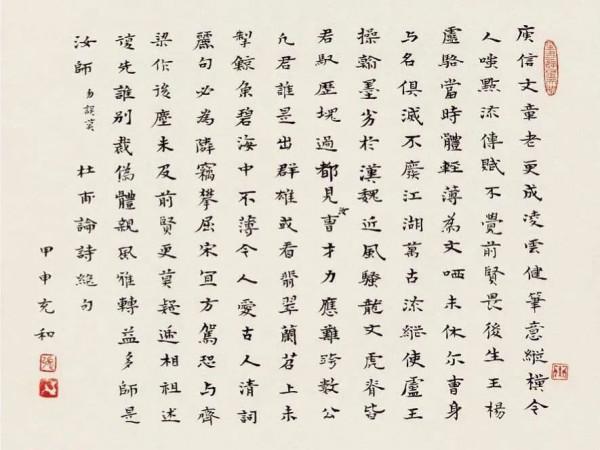 庾信文章老更成凌雲健筆意縱橫今
人嗤點流傳賦不覺前賢畏後生王楊
盧駱當時體輕薄為文哂未休尔曹身
与名俱滅不廢江湖萬古流縱使盧王
操翰墨劣於漢魏近風騷龍文虎脊皆
君馭歷塊過都見汝曹才力應難跨數公
凡君誰是出群雄或看翡翠蘭苕上未
掣鯨魚碧海中不薄今人愛古人清詞
麗句必為隣竊攀屈宋宜方駕恐与齊
梁作後塵未及前賢更莫疑遞相祖述
復先誰別裁偽體親風雅轉益多師是
汝師 杜甫論詩絕句
甲申充和